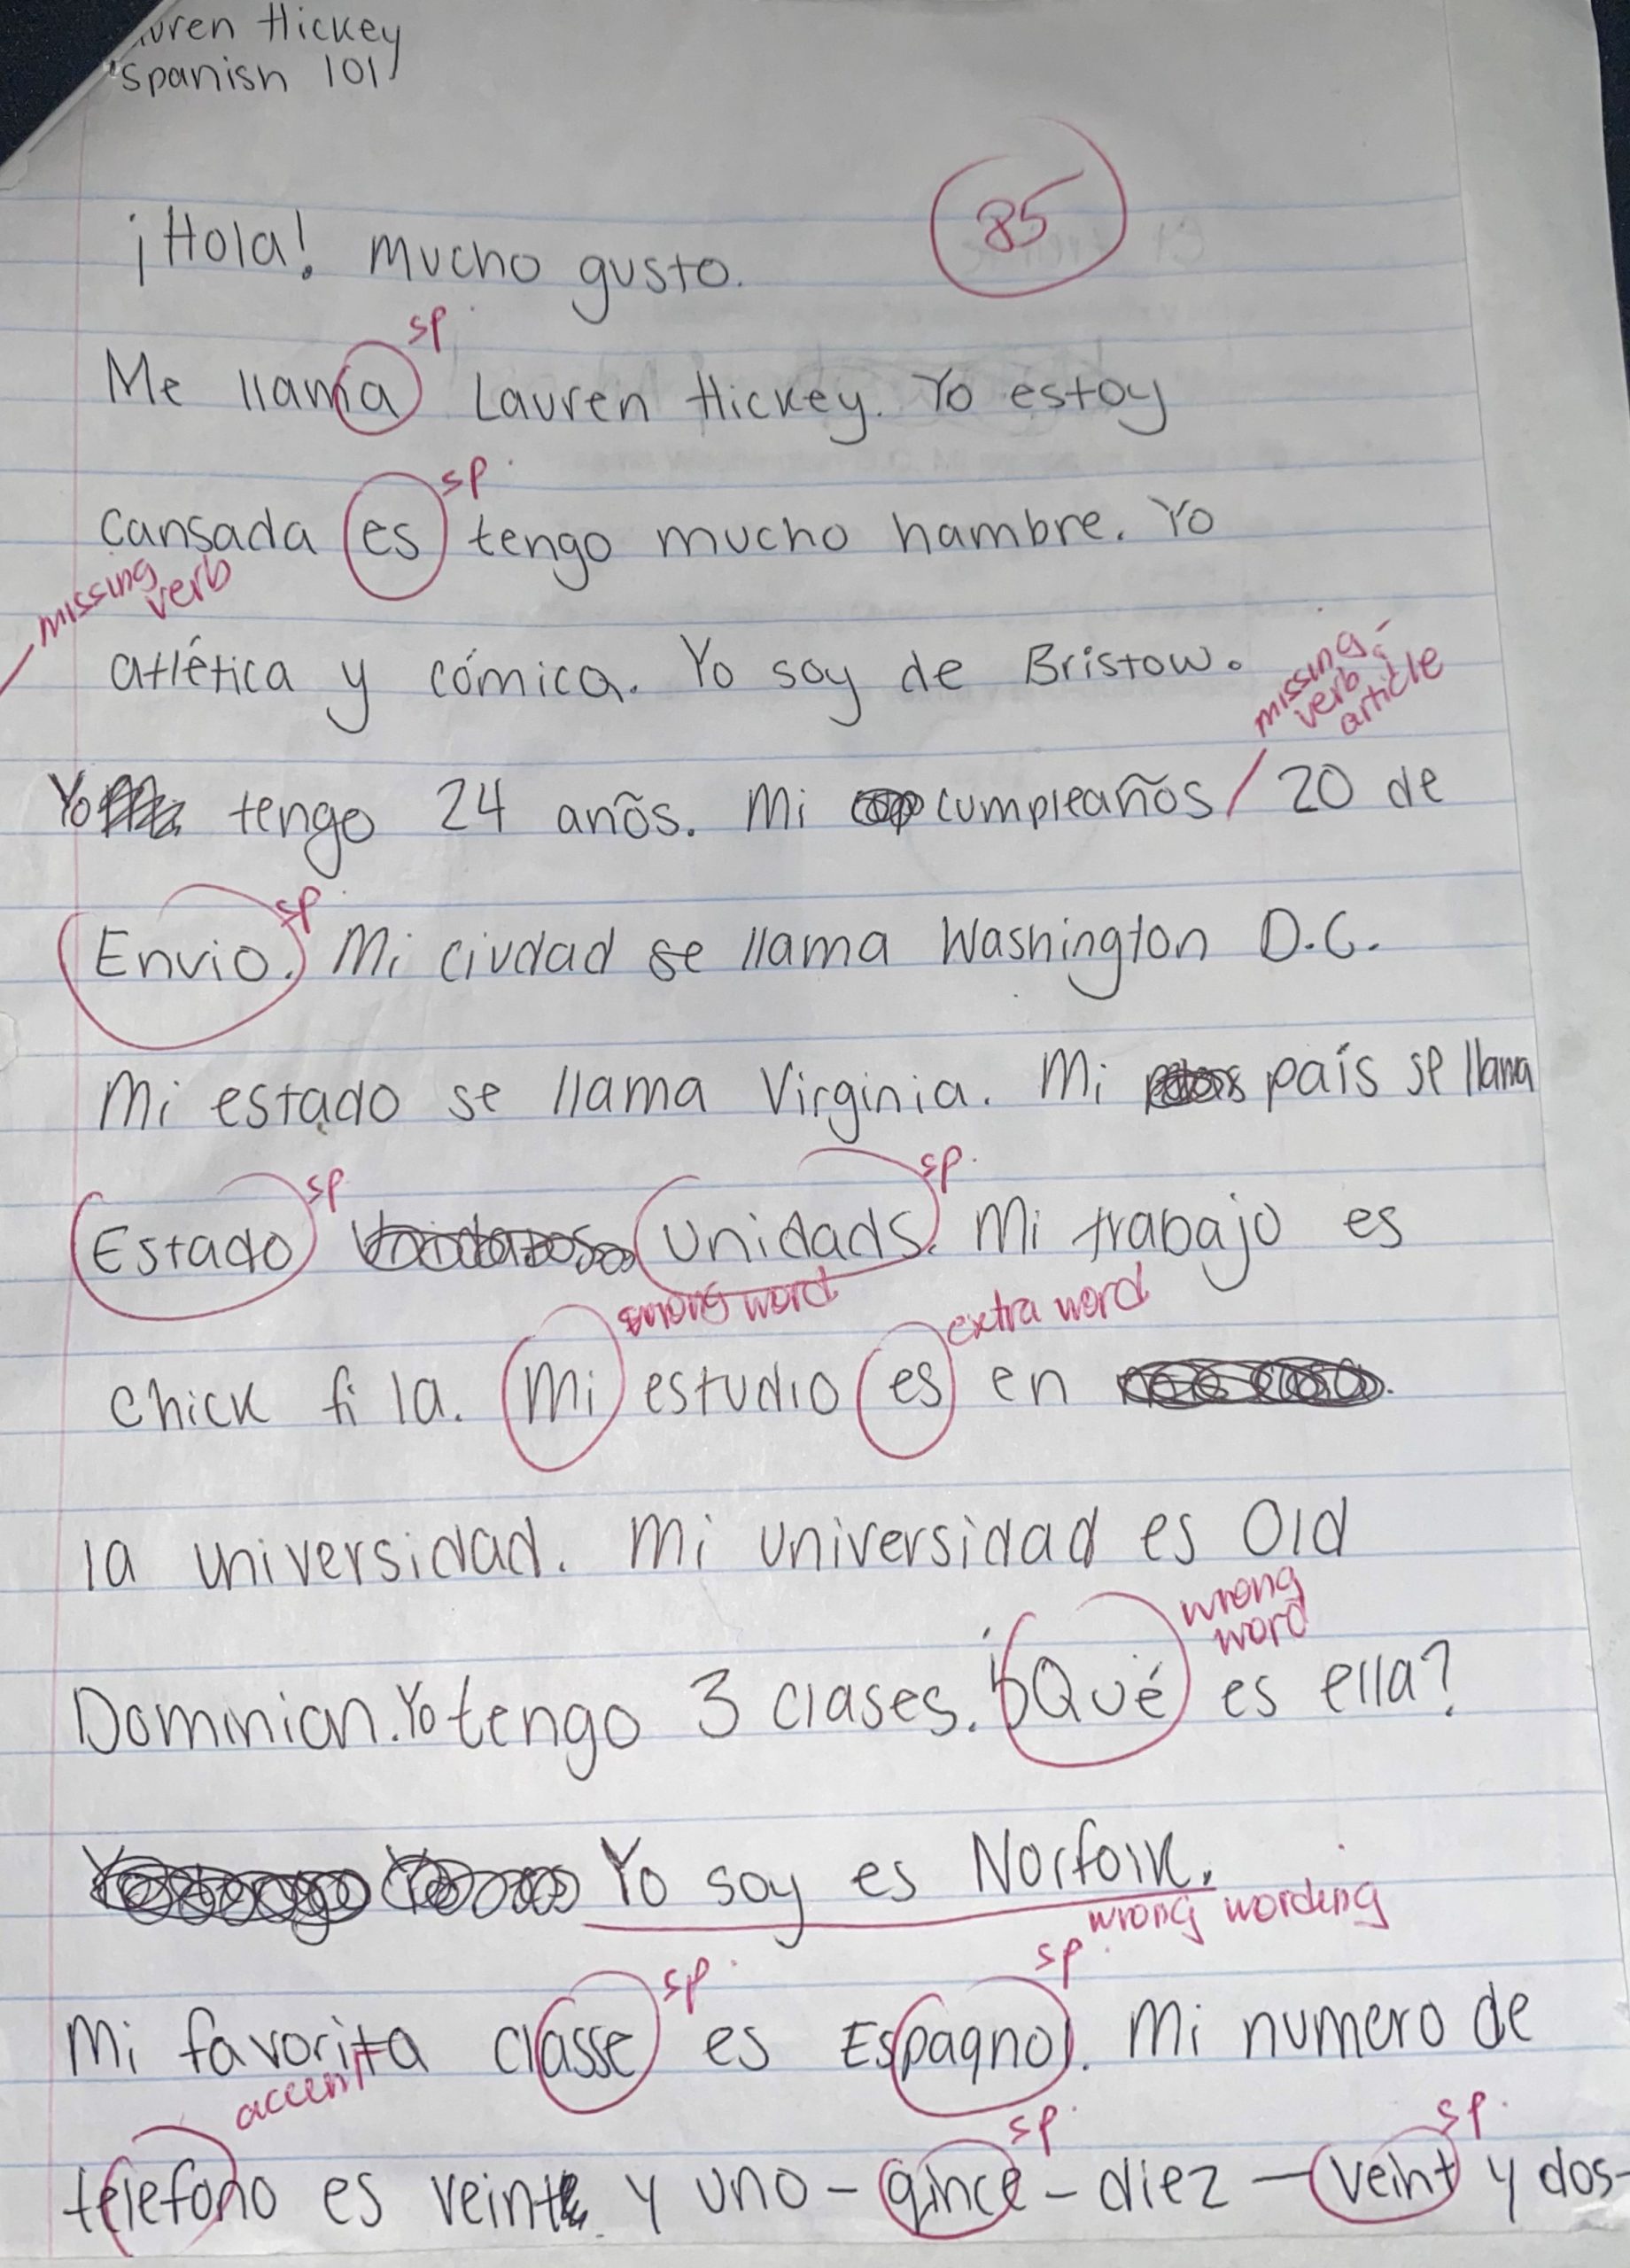 uren Hickey
Spanish 101
85
¡Hola! Mucho gusto.
sp
Me llama Lauren Hickey. Yo estoy
sp.
cansada es tengo mucho hambre. Yo
missing verb
atlética y cómica. Yo soy de Bristow.
missing verb article
Yo tengo 24 anõs. Mi cumpleaños / 20 de
sp
Envio. Mi ciudad se llama Washington D.C.
Mi estado se llama Virginia. Mi país se llama
sp sp.
Estado Unidads. Mi trabajo es
wrong word extra word
chick fi la. Mi estudio es en
la universidad. Mi universidad es Old
wrong word
Dominion. Yo tengo 3 clases. ¿Qué es ella?
Yo soy es Norfolk.
wrong wording
sp. sp.
Mi favorita classe es Espagnol. Mi numero de
accent sp. sp.
telefono es veinte y uno - qince - diez - veint y dos-